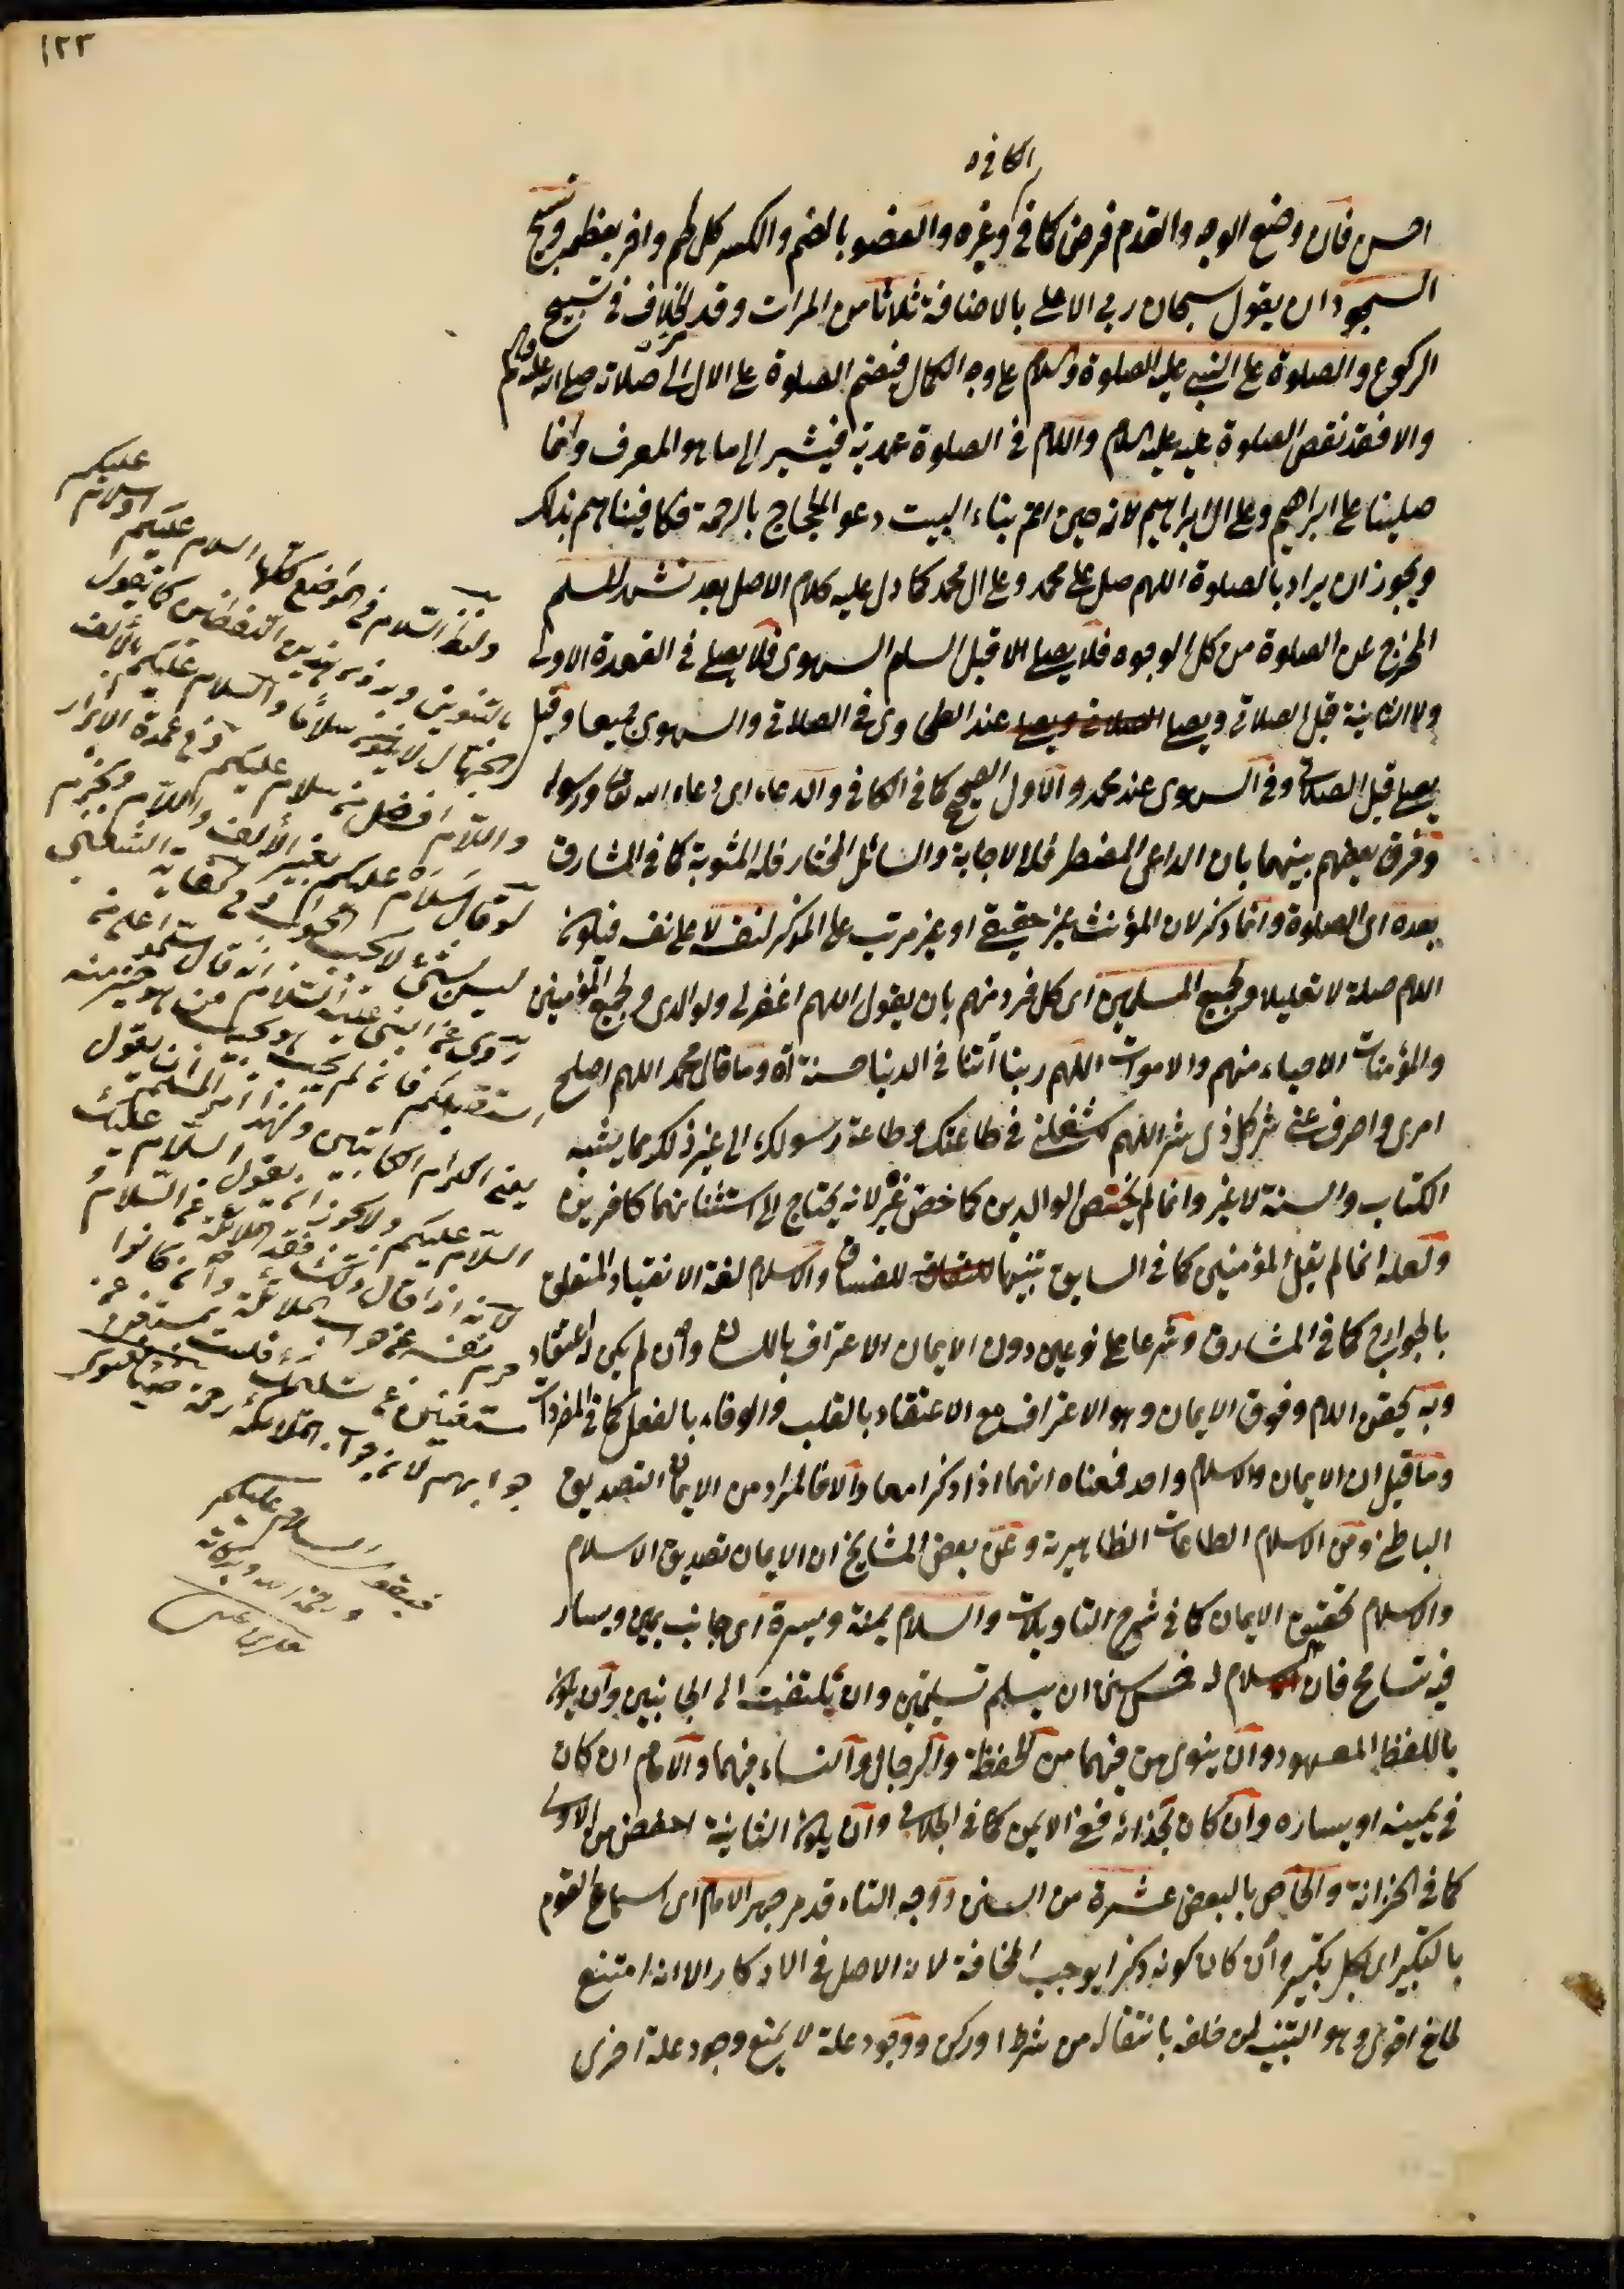 ١٢٢
الكافي
احسن فان وضع الوجه والقدم فرض كما في وغيره والعضو بالضم والكسر كل لحم وافر بعظم ويسبح
السجود ان يقول سبحان ربي الاعلى بالاضافة ثلاثا من المرات وقد مر الخلاف في تسبيح
الركوع والصلوة على النبي عليه الصلوة والسلام على وجه الكمال فيضم الصلوة على الال الى صلاته صلى الله عليه وسلم
والا فقد نقص الصلوة عليه عليه السلام واللام في الصلوة عهدية فيشير الى ما هو المعرف وانما
صلينا على ابراهيم وعلى ال ابراهيم لانه حين اتم بناء البيت دعو الحجاج بالرحمة فكافيناهم بذلك
ويجوز ان يراد بالصلوة اللهم صل على محمد وعلى ال محمد كما دل عليه كلام الاصل بعد تشهد المسلم
المخرج عن الصلوة من كل الوجوه فلا يصلى الا قبل السلم السهوي فلا يصلى في القعدة الاولى
ولا الثانية قبل الصلاتي ويصلى عند الطحاوي في الصلاتي والسهوي جميعا وقيل
يصلى قبل الصلاتي وفي السهوي عند محمد والاول الصحيح كما في الكافي والدعاء اى دعاء الله تعالى ورسوله
وفرق بعضهم بينهما بان الداعى المضطر فله الاجابة والسائل المختار فله المثوبة كما في المشارق
بعده اى الصلوة وانما ذكر لان المؤنث غير حقيقي او غير مرتب على المذكر لنفسه لا على نفسه فيكون
اللام صلة لا تعليلا ولجميع المسلمين اى كل فرد منهم بان يقول اللهم اغفر لي ولوالدي ولجميع المؤمنين
والمؤمنات الاحياء منهم والاموات اللهم ربنا آتنا في الدنيا حسنة آه وما قال محمد اللهم اصلح
امري واصرف عني شر كل ذي شر اللهم شغلني في طاعتك وطاعة رسولك الى غير ذلك مما يشبه
الكتاب والسنة لا غير وانما لم يختص الوالدين كما خص غيره لانه يحتاج الى استثنائهما كافرين
ولعله انما لم يقل المؤمنين كما في السابق تنبيها للفساق والاسلام لغة الانقياد المتعلق
بالجوارح كما في المشارق وشرعا على نوعين دون الايمان الاعتراف باللسان وان لم يكن له اعتقاد
وبه يحقن الدم وفوق الايمان وهو الاعتراف مع الاعتقاد بالقلب والوفاء بالفعل كما في المفردات
وما قيل ان الايمان والاسلام واحد فمعناه انهما اذا ذكرا معا والا فالمراد من الايمان التصديق
الباطن ومن الاسلام الطاعات الظاهرة وعن بعض المشايخ ان الايمان تصديق الاسلام
والاسلام تحقيق الايمان كما في شرح التاويلات والسلام يمنة ويسرة اى جانب يمين ويسار
فيه تسامح فان السلام له خمس سنن ان يسلم تسليمتين وان يلتفت الى الجانبين وان يكون
باللفظ المعهود وان ينوي من فيهما من الحفظة والرجال والنساء فيهما والامام ان كان
في يمينه او يساره وان كان بحذائه فمع الايمن كما في الجلابي وان يكون الثانية اخفض من الاولى
كما في الخزانة والخاص بالبعض عشرة من السنن ووجه التاء قد مر جهر الامام اى اسماع القوم
بالتكبير اى بكل تكبير وان كان كونه ذكرا يوجب المخافتة لان الاصل في الاذكار الا انه امتنع
لمانع اقوى وهو التنبيه لمن خلفه بانتقاله من شرط او ركن ووجود علة لا يمنع وجود علة اخرى
ولفظ السلام في المواضع كلها السلام عليكم
او سلام عليكم
بالتنوين وبدون هذين اللفظين كما يقول
الجهال لا يكون سلاما والسلام عليكم بالالف
واللام افضل من سلام عليكم وفي عمدة الابرار
لو قال سلام عليكم بغير الالف واللام وبجزم
ليس بشيء لا يجب الجواب وفي كفاية الشعبي
روي عن النبي عليه السلام انه قال
استقبلكم فانه لم يجب من هو خير منه
يعني الكرام الكاتبين ولهذا امر المسلم ان يقول
السلام عليكم ولا يجوز ان يقول السلام عليك
لانه اذا قال ذلك فقد عن السلام و
حرم نفسه عن جواب الملائكة وان كانوا
مستغنين عن سلامك فلست بمستغن عن
جوابهم لان جواب الملائكة رحمة
فيقول السلام عليكم
ورحمة الله وبركاته